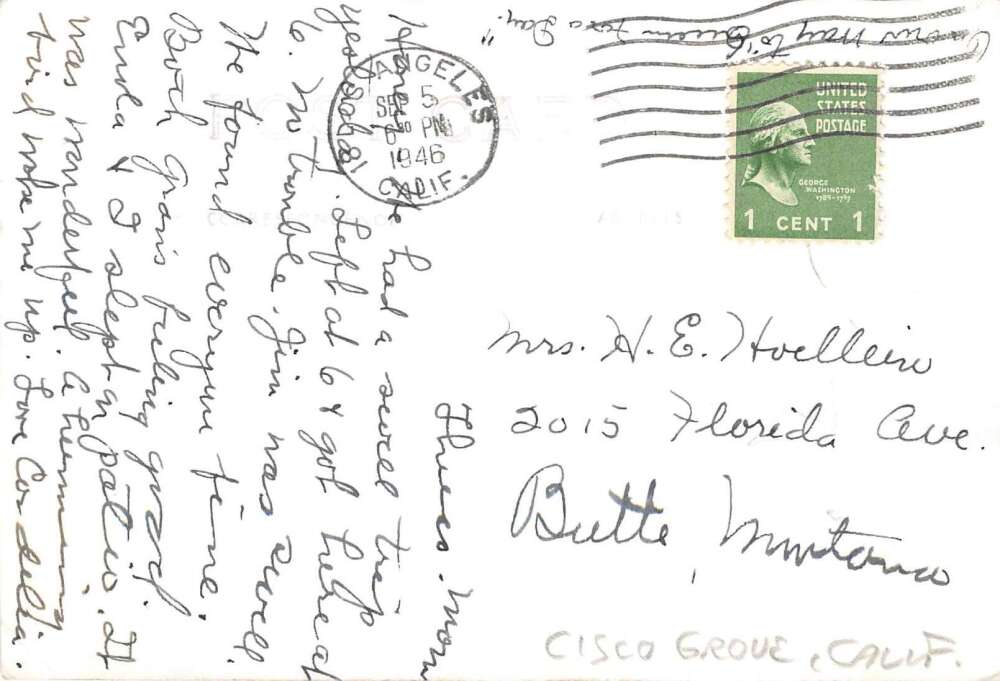 Thurs. Morn
Hans, We had a swell trip
yesterday. Left at 6 & got here at
6. No trouble. Jim was swell.
We found everyone fine.
Both grans feeling good.
Enola & I slept in patio. It
was wonderful. A hummingbird
woke me up. Love Cordelia.
May to "Queen for a Day."
ANGELES
SEP 5
6 PM
1946
CALIF.
UNITED
STATES
POSTAGE
GEORGE
WASHINGTON
1789-1797
1 CENT 1
Mrs. H. E. Hoellein
2015 Florida Ave.
Butte, Montana
CISCO GROVE, CALIF.